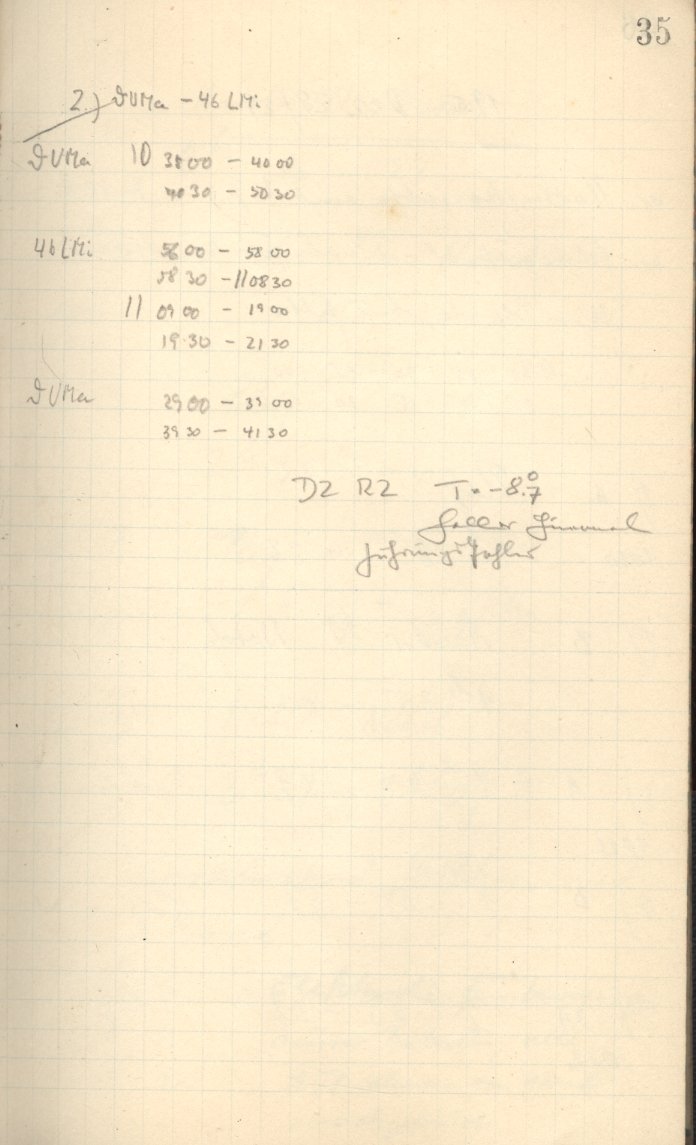 35
2.) ϑ UMa - 46 LMi
ϑ UMa 10 38 00 - 40 00
40 30 - 50 30
46 LMi 56 00 - 58 00
58 30 - 11 08 30
11 09 00 - 19 00
19 30 - 21 30
ϑ UMa 29 00 - 39 00
39 30 - 41 30
D2 R2 T = -8.°7
heller Himmel
Führungsfehler